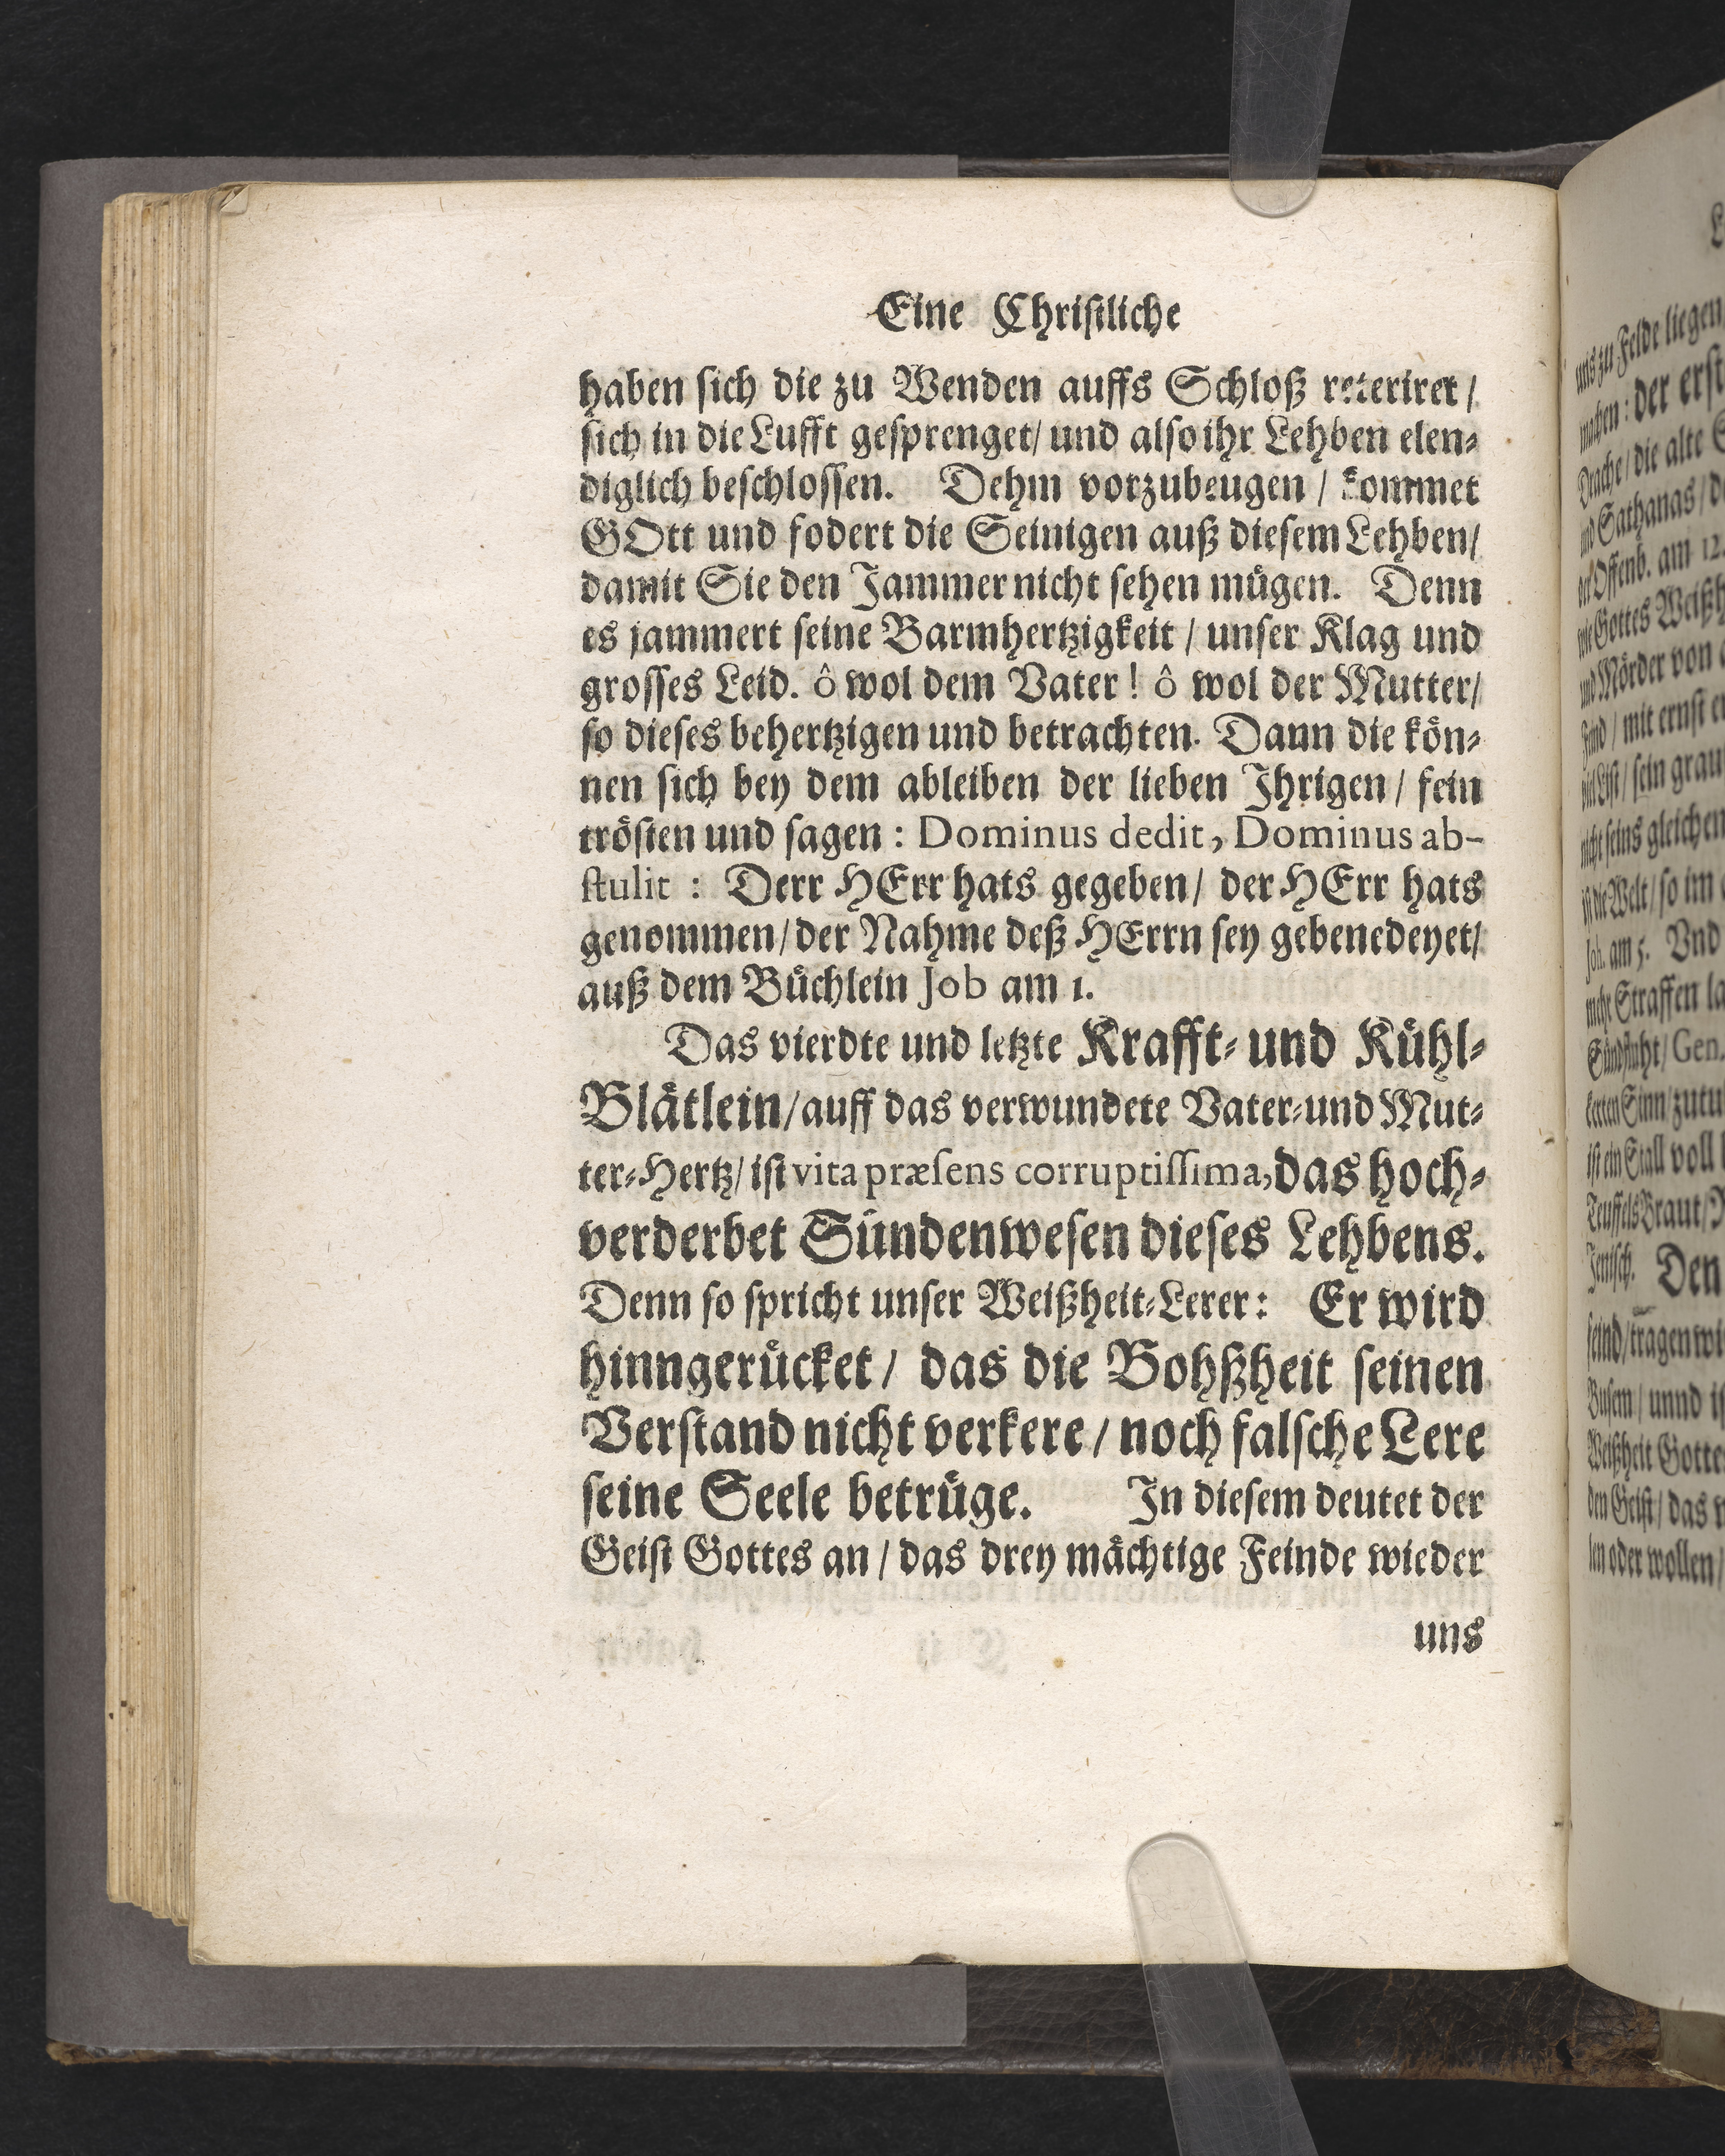 Eine Chriſtliche
haben ſich die zu Wenden auffs Schloß reteriret /
ſich in die Lufft geſprenget / und alſo ihr Lehben elen⸗
diglich beſchloſſen. Dehm vorzubeugen / kommet
GOtt und fodert die Seinigen auß dieſem Lehben /
damit Sie den Jammer nicht ſehen muͤgen. Denn
es jammert ſeine Barmhertzigkeit / unſer Klag und
groſſes Leid. ô wol dem Vater ! ô wol der Mutter /
ſo dieſes behertzigen und betrachten. Dann die koͤn⸗
nen ſich bey dem ableiben der lieben Ihrigen / fein
troͤſten und ſagen : Dominus dedit, Dominus ab-
ſtulit : Derr HErr hats gegeben / der HErr hats
genommen / der Nahme deß HErrn ſey gebenedeyet /
auß dem Buͤchlein Job am 1.
Das vierdte und letzte Krafft⸗ und Kuͤhl⸗
Blaͤtlein / auff das verwundete Vater⸗ und Mut⸗
ter⸗Hertz / iſt vita præſens corruptiſſima, das hoch⸗
verderbet Suͤndenweſen dieſes Lehbens.
Denn ſo ſpricht unſer Weißheit⸗Lerer : Er wird
hinngeruͤcket / das die Bohßheit ſeinen
Verſtand nicht verkere / noch falſche Lere
ſeine Seele betruͤge. In dieſem deutet der
Geiſt Gottes an / das drey maͤchtige Feinde wieder
uns
uns zu Felde liegen
machen : der erſt
Drache / die alte
und Sathanas /
der Offenb. am 12.
wie Gottes Weißh
und Mörder von
Feind / mit ernſt
viel Liſt / ſein grau
nicht ſeins gleichen
iſt die Welt / ſo im
Joh. am 5. Vnd
mehr Straffen
Gen.
Sinn / zutu
iſt ein Stall voll
Teuffels Braut /
Den
ſeind / tragen
Buſem / unnd
Weißheit Gotte
den Geiſt / das
len oder wollen /